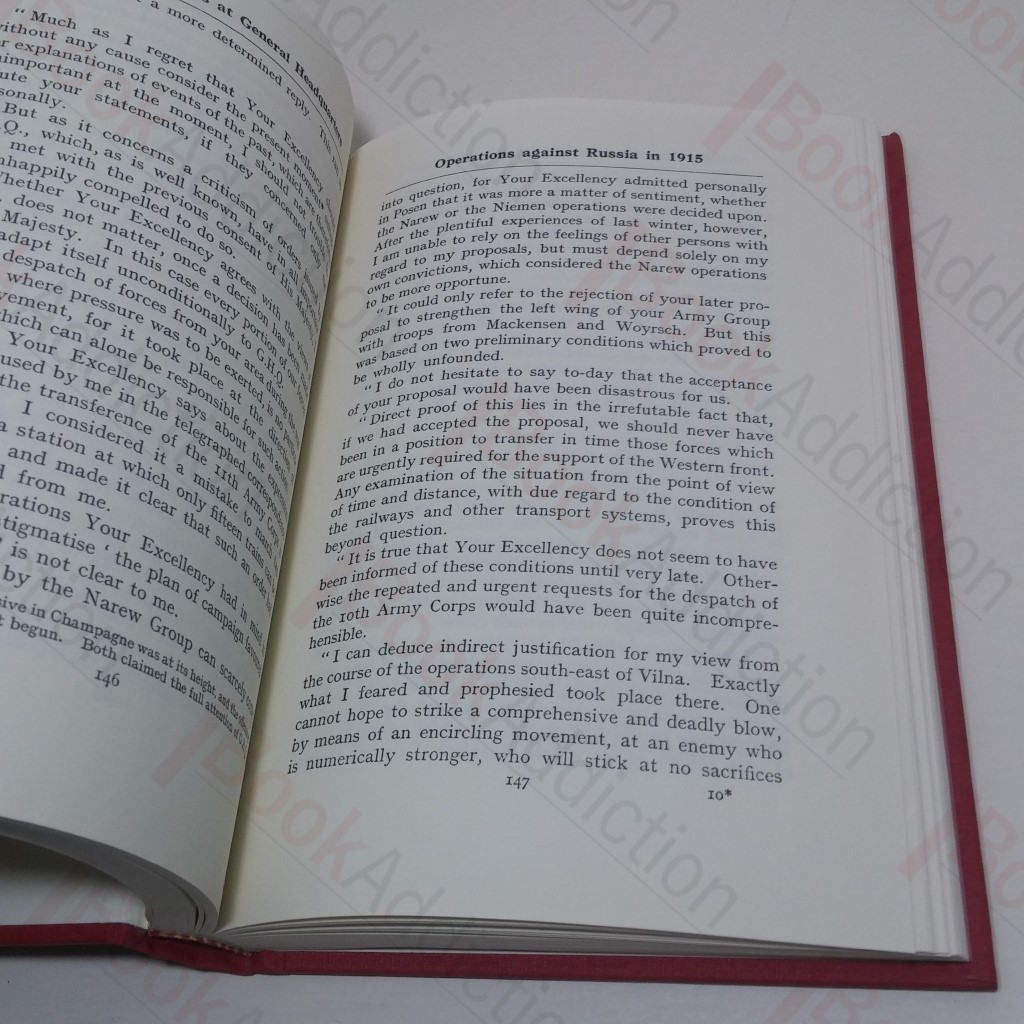 s at General Headquarters
a more determined reply. This
“ Much as I regret that Your Excellency
without any cause consider the present moment
r explanations of events of the past, which are
important at the moment, I should not
ute your statements, if they concerned only
sonally.
But as it concerns a criticism of orders
.Q., which, as is well known, have in all
met with the previous consent of His
nhappily compelled to do so.
Whether Your Excellency agrees with the
does not matter, once a decision has been
Majesty. In this case every portion of our
adapt itself unconditionally to G.H.Q.
despatch of forces from your area during the
where pressure was to be exerted, is no
vement, for it took place at the
which can alone be responsible for such
Your Excellency says about the
used by me in the telegraphed
the transference of the 11th Army Corps
I considered it a mistake to
a station at which only fifteen trains can
and made it clear that such an order
d from me.
rations Your Excellency had in mind
stigmatise ‘ the plan of campaign
is not clear to me.
by the Narew Group can scarcely
sive in Champagne was at its height, and the
t begun. Both claimed the full attention of G.
146
Operations against Russia in 1915
into question, for Your Excellency admitted personally
in Posen that it was more a matter of sentiment, whether
the Narew or the Niemen operations were decided upon.
After the plentiful experiences of last winter, however,
I am unable to rely on the feelings of other persons with
regard to my proposals, but must depend solely on my
own convictions, which considered the Narew operations
to be more opportune.
“ It could only refer to the rejection of your later pro-
posal to strengthen the left wing of your Army Group
with troops from Mackensen and Woyrsch. But this
was based on two preliminary conditions which proved to
be wholly unfounded.
“ I do not hesitate to say to-day that the acceptance
of your proposal would have been disastrous for us.
“ Direct proof of this lies in the irrefutable fact that,
if we had accepted the proposal, we should never have
been in a position to transfer in time those forces which
are urgently required for the support of the Western front.
Any examination of the situation from the point of view
of time and distance, with due regard to the condition of
the railways and other transport systems, proves this
beyond question.
“ It is true that Your Excellency does not seem to have
been informed of these conditions until very late. Other-
wise the repeated and urgent requests for the despatch of
the 10th Army Corps would have been quite incompre-
hensible.
“ I can deduce indirect justification for my view from
the course of the operations south-east of Vilna. Exactly
what I feared and prophesied took place there. One
cannot hope to strike a comprehensive and deadly blow,
by means of an encircling movement, at an enemy who
is numerically stronger, who will stick at no sacrifices
147
10*
BookAddiction